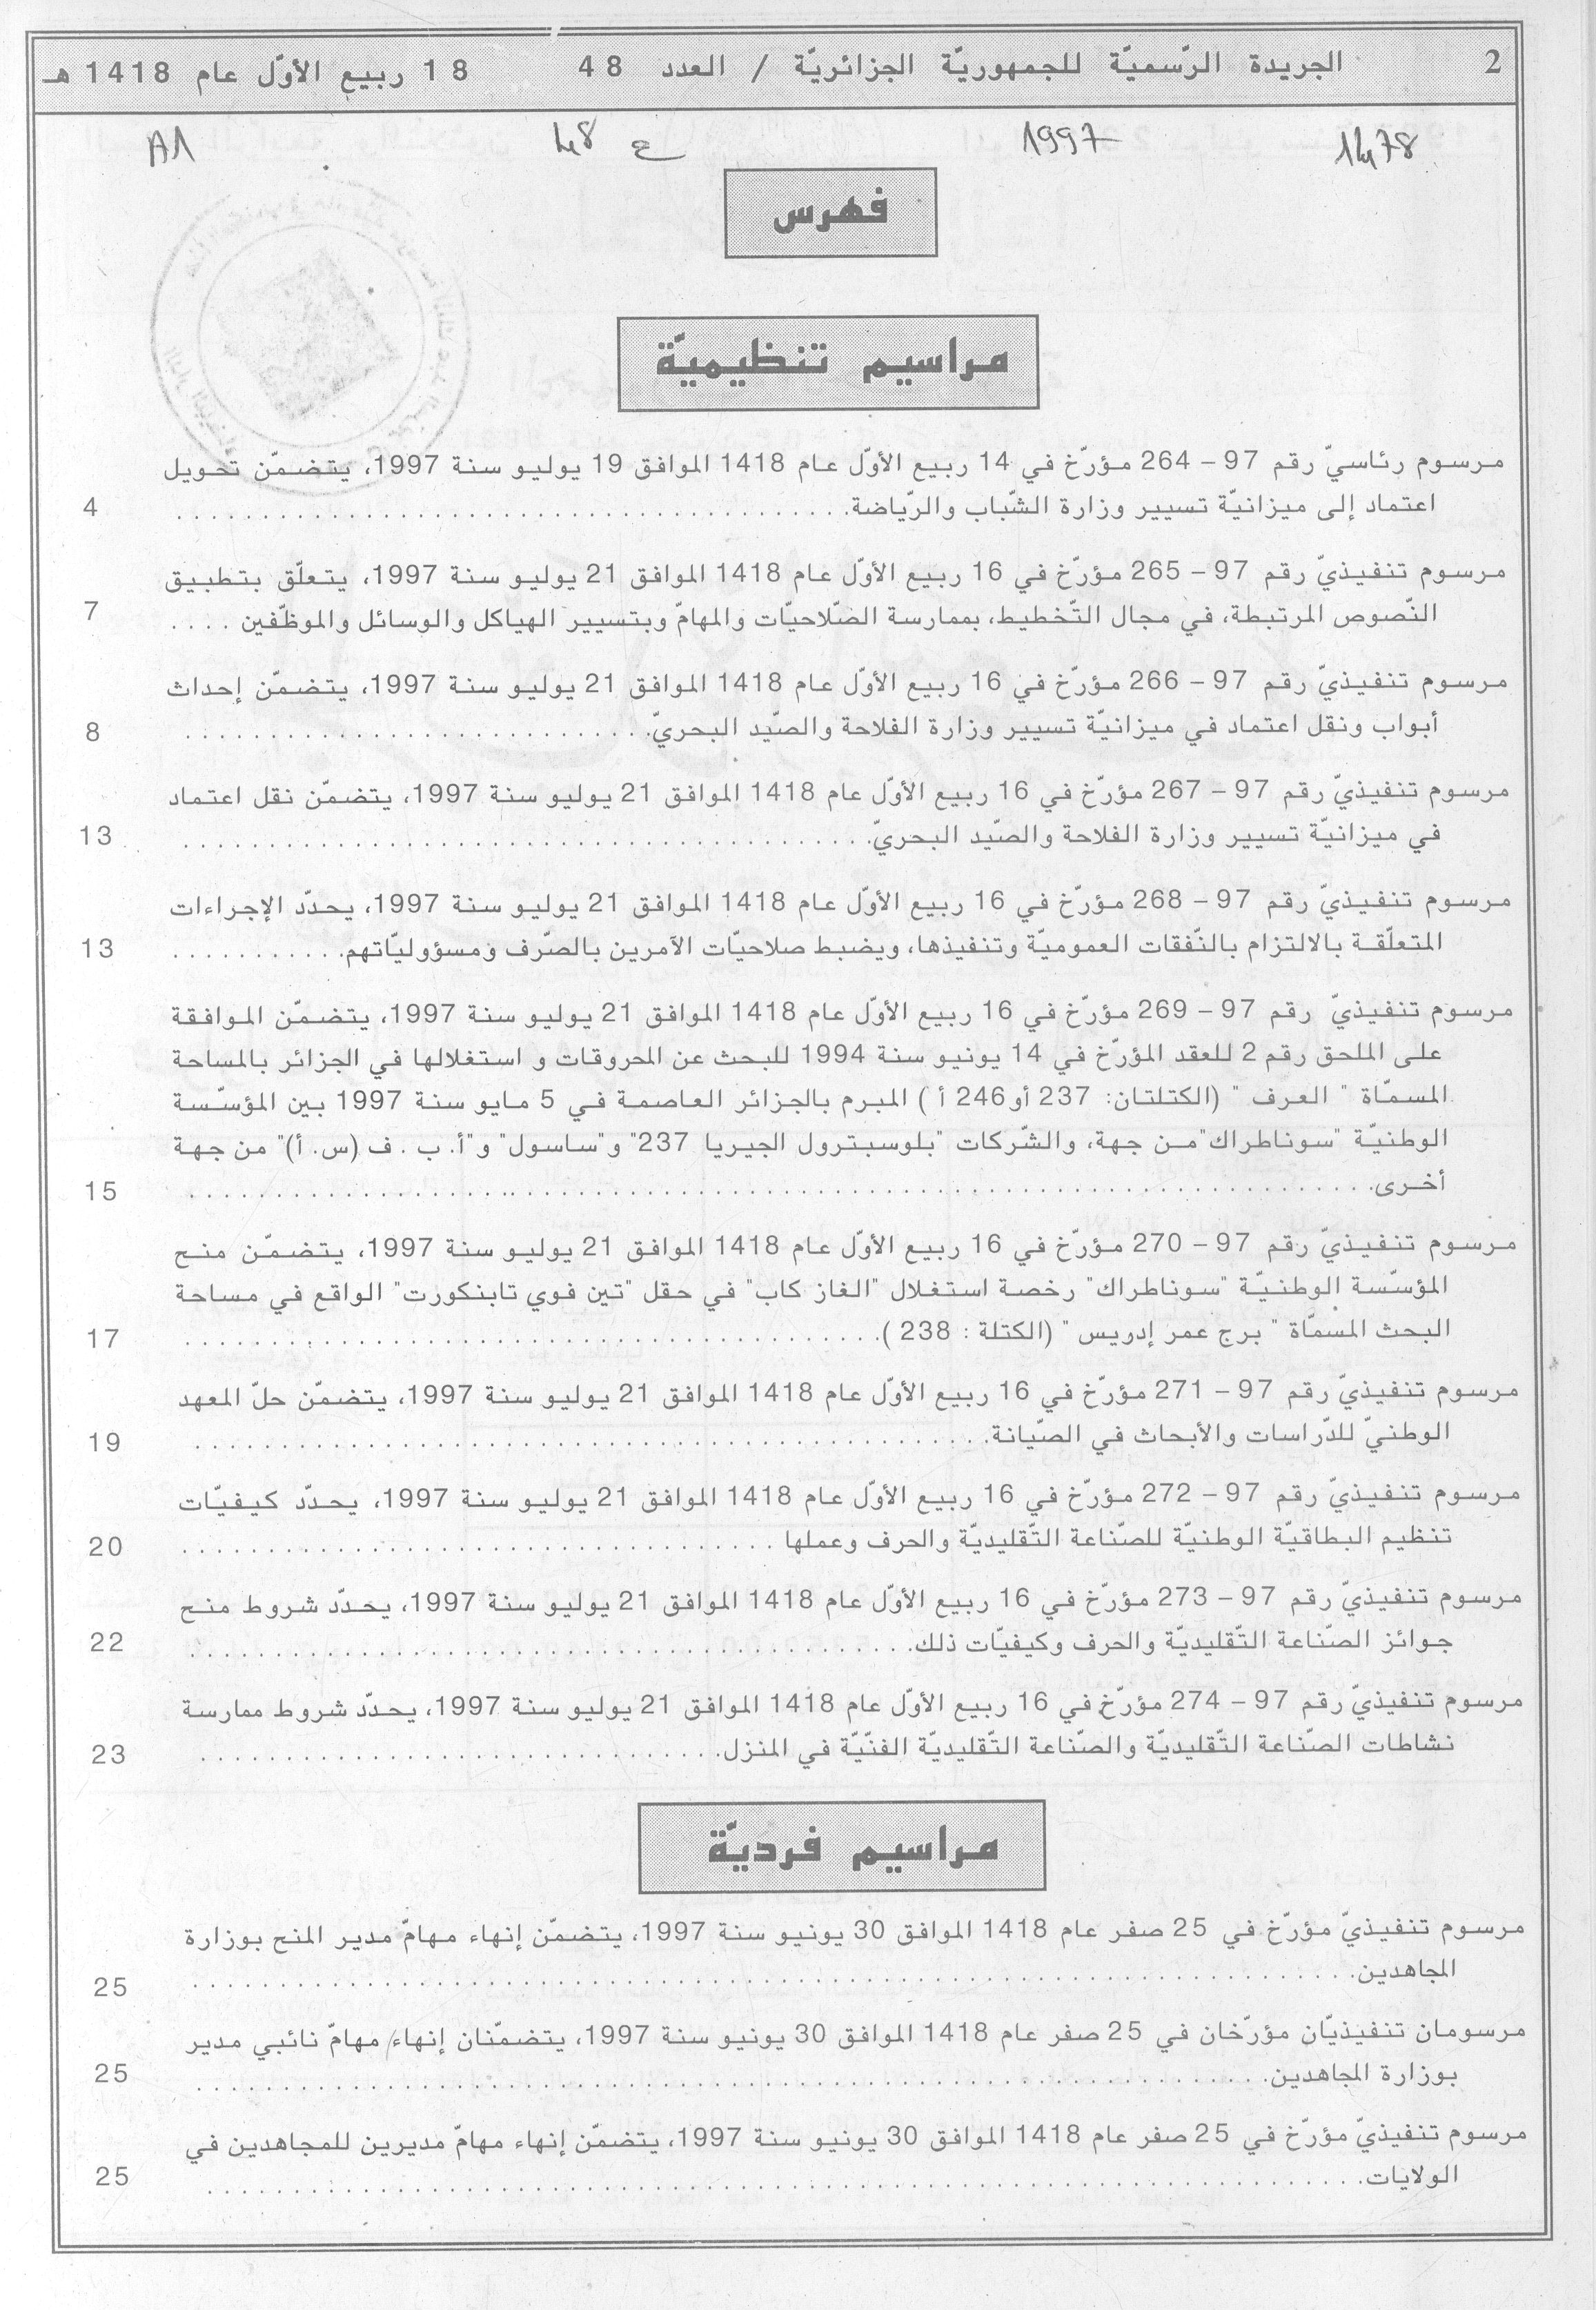 2 الجريدة الرّسميّة للجمهوريّة الجزائريّة / العدد 48 18 ربيع الأوّل عام 1418 هـ
1478 1997 ع 48 A1
فهرس
مراسيم تنظيميّة
مرسوم رئاسيّ رقم 97 – 264 مؤرّخ في 14 ربيع الأوّل عام 1418 الموافق 19 يوليو سنة 1997، يتضمّن تحويل
اعتماد إلى ميزانيّة تسيير وزارة الشّباب والرّياضة. 4
مرسوم تنفيذيّ رقم 97 – 265 مؤرّخ في 16 ربيع الأوّل عام 1418 الموافق 21 يوليو سنة 1997، يتعلّق بتطبيق
النّصوص المرتبطة، في مجال التّخطيط، بممارسة الصّلاحيّات والمهامّ وبتسيير الهياكل والوسائل والموظّفين 7
مرسوم تنفيذيّ رقم 97 – 266 مؤرّخ في 16 ربيع الأوّل عام 1418 الموافق 21 يوليو سنة 1997، يتضمّن إحداث
أبواب ونقل اعتماد في ميزانيّة تسيير وزارة الفلاحة والصّيد البحريّ. 8
مرسوم تنفيذيّ رقم 97 – 267 مؤرّخ في 16 ربيع الأوّل عام 1418 الموافق 21 يوليو سنة 1997، يتضمّن نقل اعتماد
في ميزانيّة تسيير وزارة الفلاحة والصّيد البحريّ. 13
مرسوم تنفيذيّ رقم 97 – 268 مؤرّخ في 16 ربيع الأوّل عام 1418 الموافق 21 يوليو سنة 1997، يحدّد الإجراءات
المتعلّقة بالالتزام بالنّفقات العموميّة وتنفيذها، ويضبط صلاحيّات الآمرين بالصّرف ومسؤوليّاتهم. 13
مرسوم تنفيذيّ رقم 97 – 269 مؤرّخ في 16 ربيع الأوّل عام 1418 الموافق 21 يوليو سنة 1997، يتضمّن الموافقة
على الملحق رقم 2 للعقد المؤرّخ في 14 يونيو سنة 1994 للبحث عن المحروقات و استغلالها في الجزائر بالمساحة
المسمّاة " العرف " (الكتلتان: 237 أو 246 أ ) المبرم بالجزائر العاصمة في 5 مايو سنة 1997 بين المؤسّسة
الوطنيّة "سوناطراك" من جهة، والشّركات "بلوسبترول الجيريا 237" و"ساسول" و"أ. ب . ف (س. أ)" من جهة
أخرى. 15
مرسوم تنفيذيّ رقم 97 – 270 مؤرّخ في 16 ربيع الأوّل عام 1418 الموافق 21 يوليو سنة 1997، يتضمّن منح
المؤسّسة الوطنيّة "سوناطراك" رخصة استغلال "الغاز كاب" في حقل "تين فوي تابنكورت" الواقع في مساحة
البحث المسمّاة " برج عمر إدريس " (الكتلة : 238 ). 17
مرسوم تنفيذيّ رقم 97 – 271 مؤرّخ في 16 ربيع الأوّل عام 1418 الموافق 21 يوليو سنة 1997، يتضمّن حلّ المعهد
الوطنيّ للدّراسات والأبحاث في الصّيانة. 19
مرسوم تنفيذيّ رقم 97 – 272 مؤرّخ في 16 ربيع الأوّل عام 1418 الموافق 21 يوليو سنة 1997، يحدّد كيفيّات
تنظيم البطاقيّة الوطنيّة للصّناعة التّقليديّة والحرف وعملها 20
مرسوم تنفيذيّ رقم 97 – 273 مؤرّخ في 16 ربيع الأوّل عام 1418 الموافق 21 يوليو سنة 1997، يحدّد شروط منح
جوائز الصّناعة التّقليديّة والحرف وكيفيّات ذلك. 22
مرسوم تنفيذيّ رقم 97 – 274 مؤرّخ في 16 ربيع الأوّل عام 1418 الموافق 21 يوليو سنة 1997، يحدّد شروط ممارسة
نشاطات الصّناعة التّقليديّة والصّناعة التّقليديّة الفنّيّة في المنزل. 23
مراسيم فرديّة
مرسوم تنفيذيّ مؤرّخ في 25 صفر عام 1418 الموافق 30 يونيو سنة 1997، يتضمّن إنهاء مهامّ مدير المنح بوزارة
المجاهدين. 25
مرسومان تنفيذيّان مؤرّخان في 25 صفر عام 1418 الموافق 30 يونيو سنة 1997، يتضمّنان إنهاء مهامّ نائبي مدير
بوزارة المجاهدين. 25
مرسوم تنفيذيّ مؤرّخ في 25 صفر عام 1418 الموافق 30 يونيو سنة 1997، يتضمّن إنهاء مهامّ مديرين للمجاهدين في
الولايات. 25